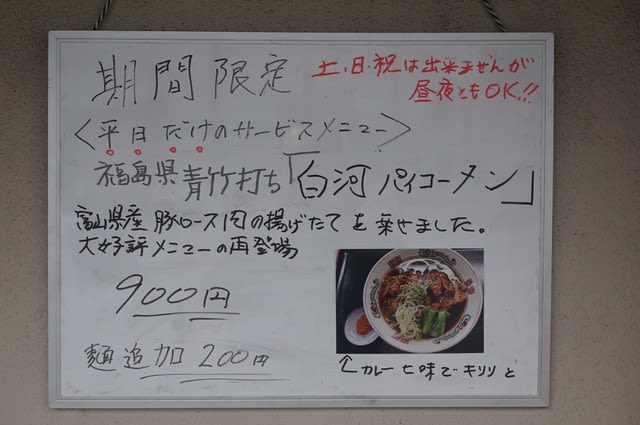 期間限定
土、日、祝は出来ませんが
昼夜ともOK!!
〈平日だけのサービスメニュー〉
福島県青竹打ち「白河パイコーメン」
富山県産豚ロース肉の揚げたてを乗せました。
大好評メニューの再登場
900円
麺追加200円
↑カレー七味でキリリと